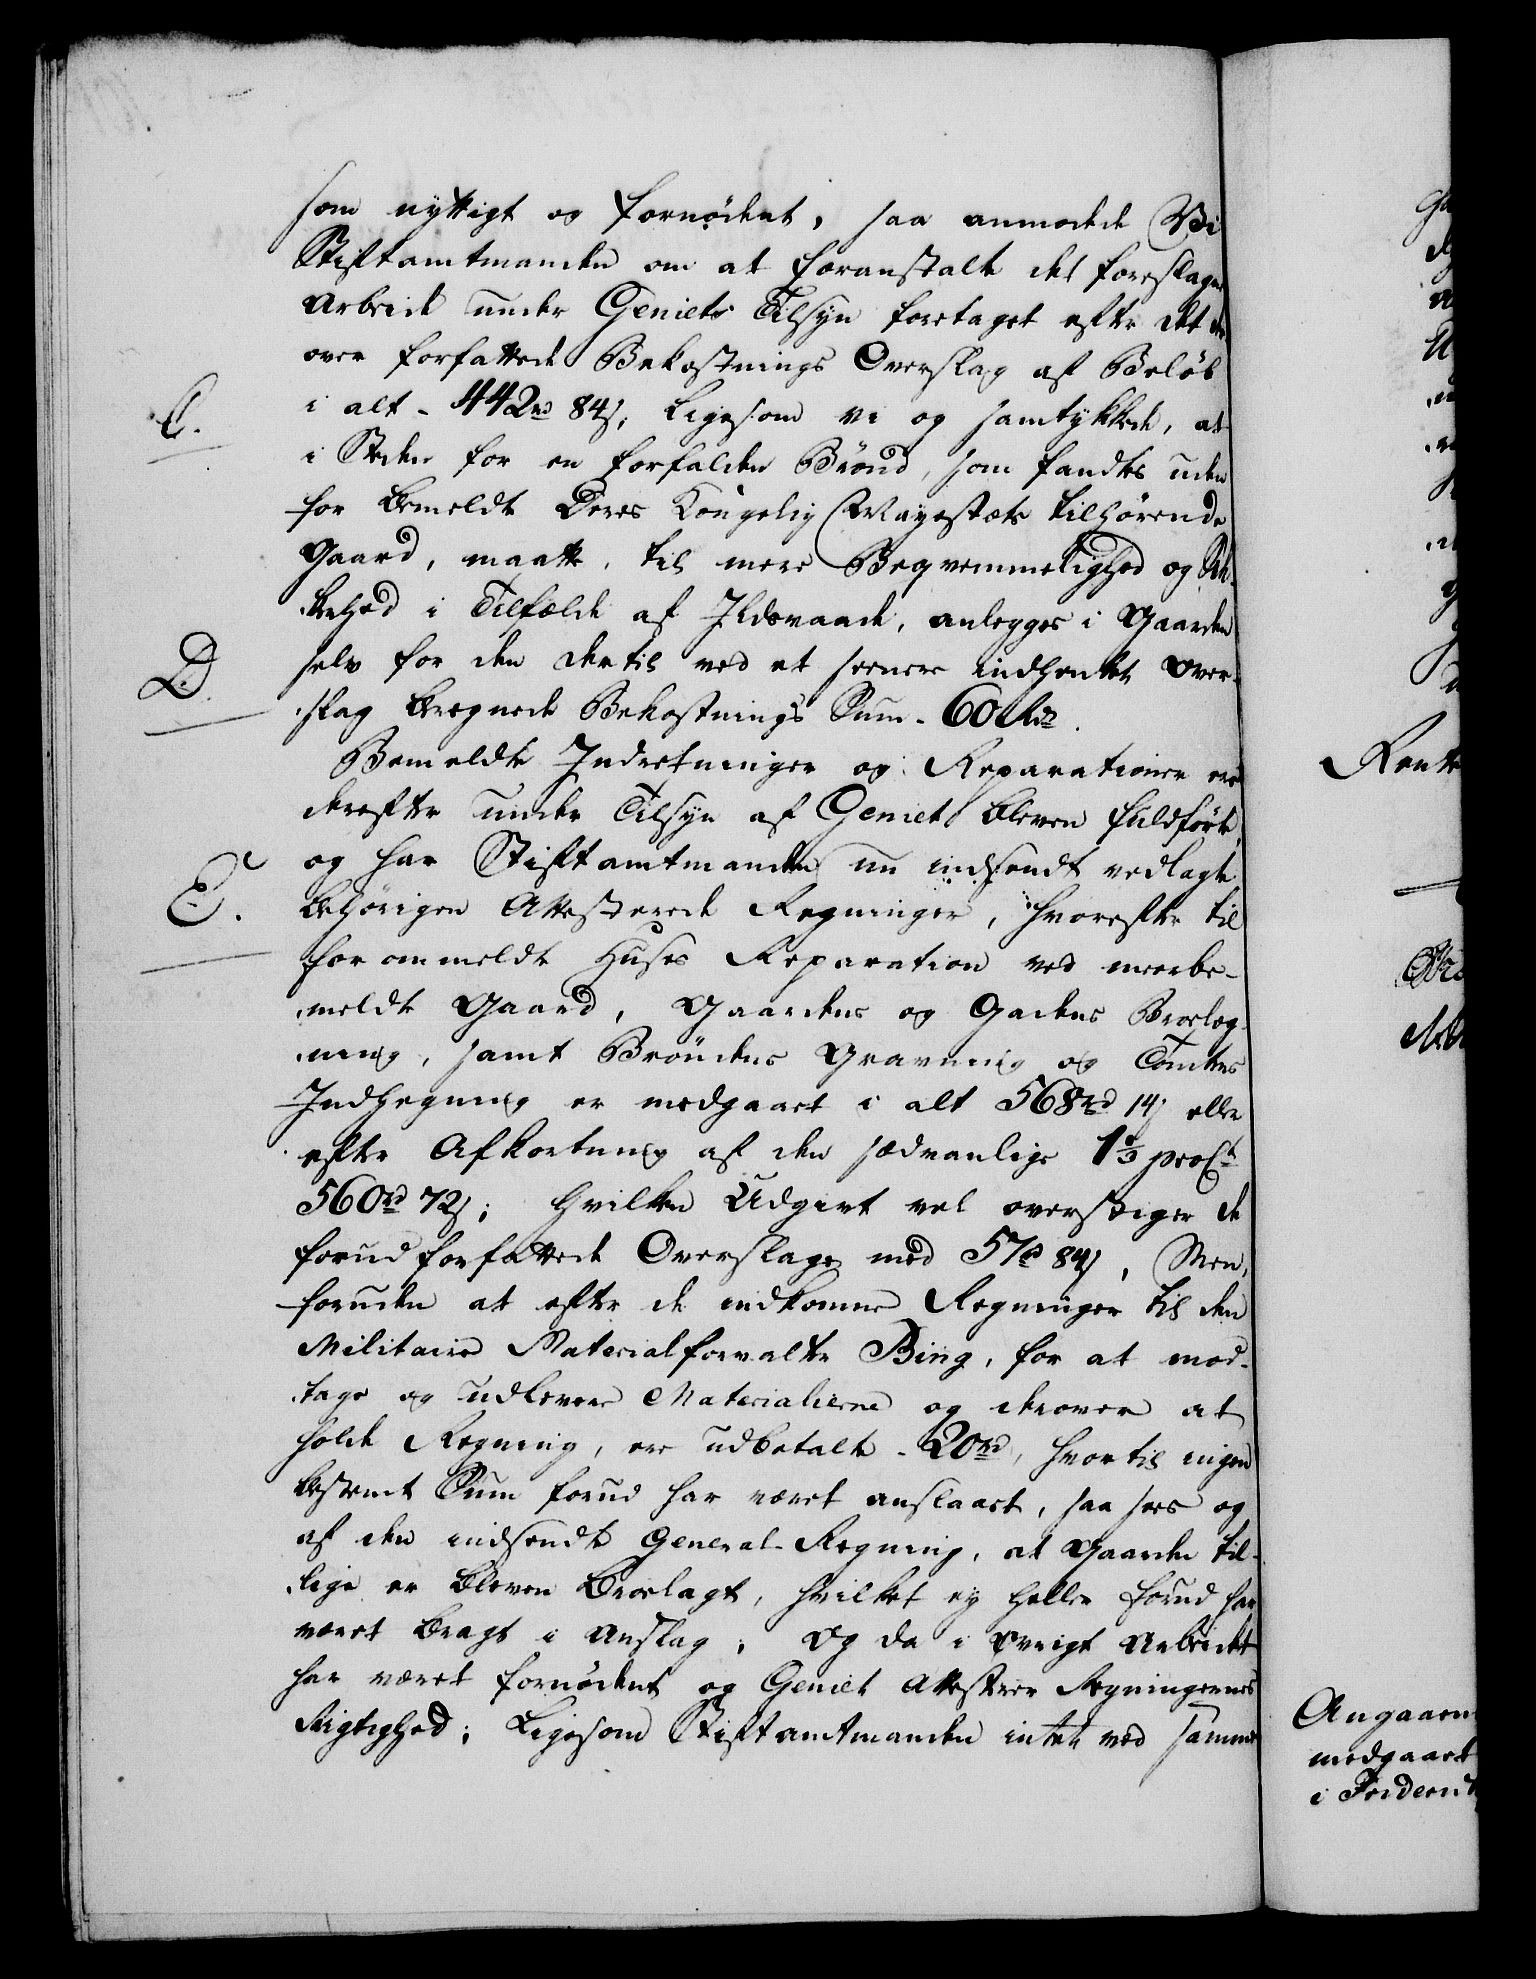 som nyttigt og fornødent, saa anmodede Vi
Stiftamtmanden om at foranstalte det foreslagne
Arbeide under Geniets Tilsyn foretaget efter det der
over forfattede Bekostnings Overslag af Beløb
C.
i alt - 442rd 84s; Ligesom vi og samtykkede, at
i Steden for en forfalden Brønd, som fandtes uden
for bemeldte Deres Kongelig Mayestæts tilhørende
Gaard, maatte, til mere Beqvemmelighed og Sik-
kerhed i Tilfælde af Ildsvaade, anlegges i Gaarden
D.
selv for den dertil ved et seenere indhentet Over-
slag beregnede Bekostnings Sum - 60 Rdr.
Bemeldte Indretninger og Reparationer ere
derefter under Tilsyn af Geniet bleven fuldførte,
og har Stiftamtmanden nu indsendt vedlagte
E.
behørigen Attesterede Regninger, hvorefter til
forommeldte Huses Reparation ved meerbe-
meldte Gaard, Gaardens og Gadens Broelæg-
ning, samt Brøndens Gravning og Tomtes
Indhegning er medgaaet i alt 568rd 14s eller
efter Afkortning af den sædvanlige 1⅓ proCt
560rd 72s; Hvilken Udgivt vel overstiger de
forud forfattede Overslage med 57rd 84s, Men,
foruden at efter de indkomne Regninger til den
Militaire Materialforvalter Bing, for at mod-
tage og udlevere Materialierne og derover at
holde Regning, ere udbetalte - 20rd, hvortil ingen
bestemt Sum forud har været anslaaet, saa sees og
af den indsendte General-Regning, at Gaarden til-
lige er bleven broelagt, hvilket ey heller forud har
været bragt i Anslag; Og da i øvrigt Arbeidet
har været fornødent og Geniet Attesterer Regningernes
Rigtighed; Ligesom Stiftamtmanden intet ved samme
Rente
Angaaen
medgaaet
i Friderich